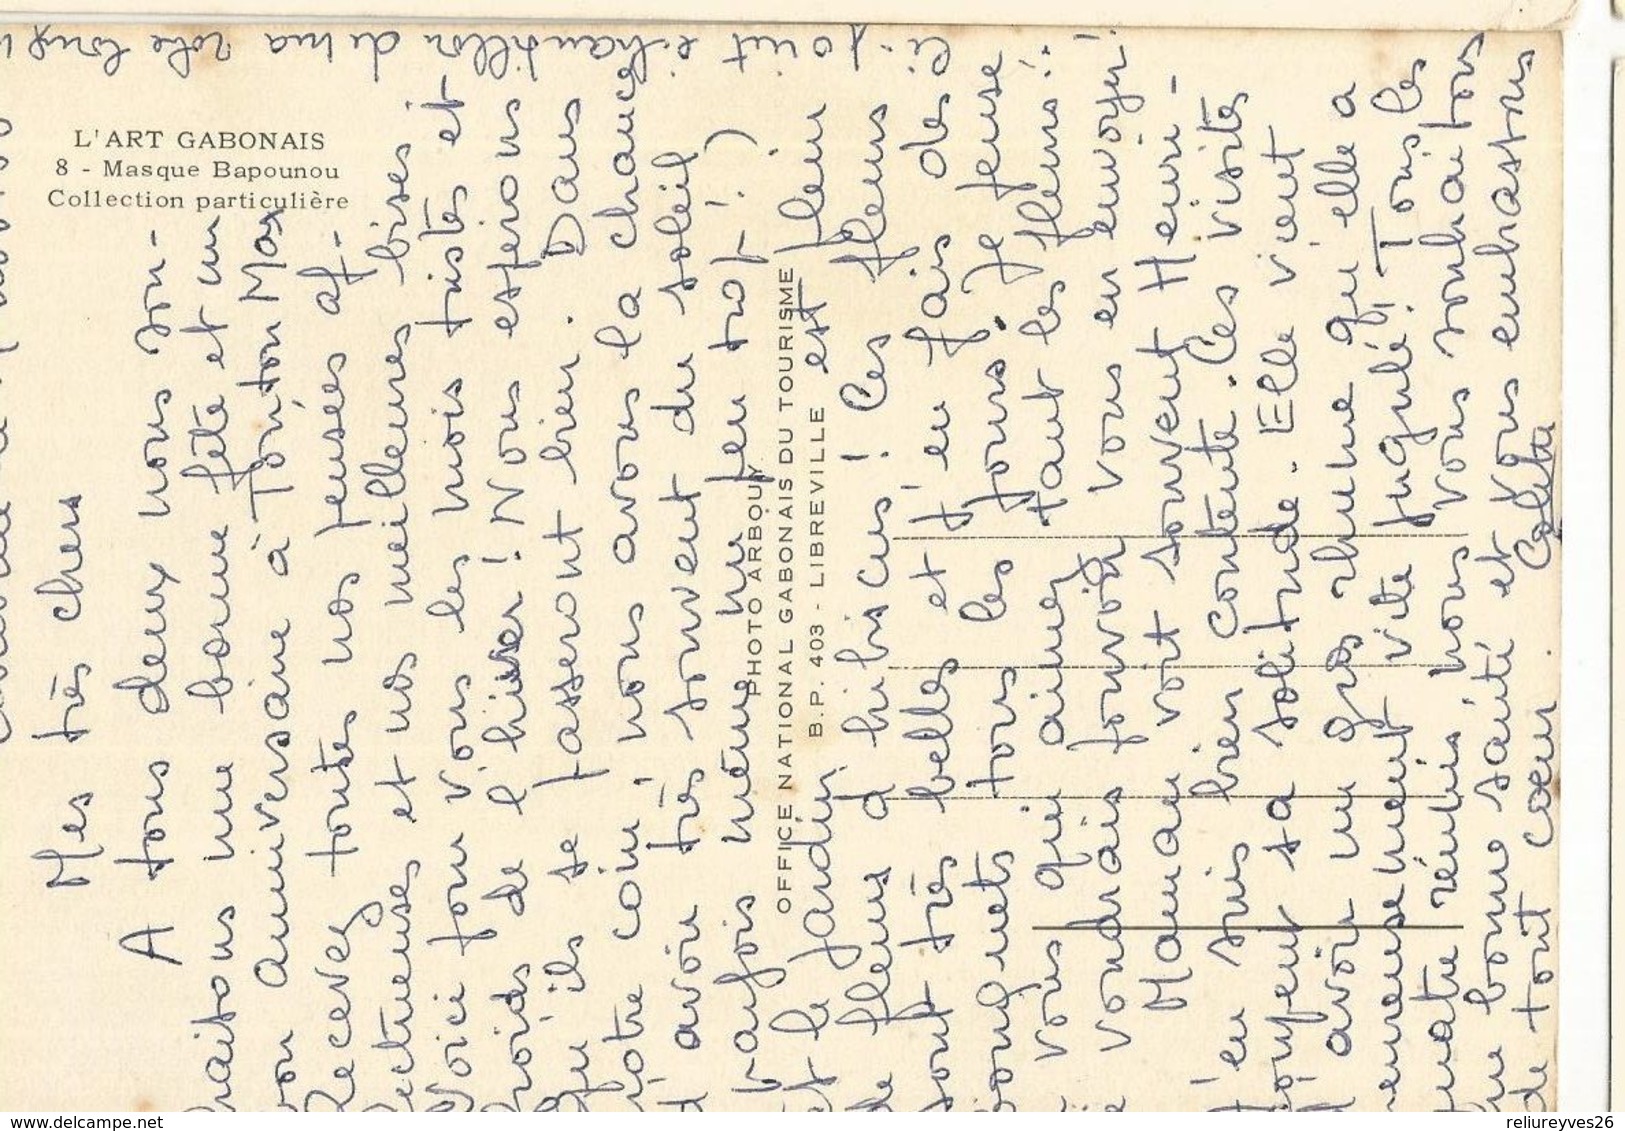 L'ART GABONAIS
8 - Masque Bapounou
Collection particulière
PHOTO ARBOUY
OFFICE NATIONAL GABONAIS DU TOURISME
B.P. 403 - LIBREVILLE
ci-joint échantillon de ma robe
Mes très chers
A tous deux nous sou-
haitons une bonne fête et un
bon anniversaire à Tonton Max
Recevez toutes nos pensées af-
fectueuses et nos meilleures bises.
Voici pour vous les mois tristes et
froids de l'hiver ! Nous espérons
qu'ils se passeront bien. Dans
notre coin, nous avons la chance
d'avoir très souvent du soleil
(parfois même un peu trop !)
et le jardin est plein
de fleurs d'hibiscus ! Ces fleurs
sont très belles et j'en fais des
bouquets tous les jours. Je pense
à vous qui aimez tant les fleurs !!
Je voudrais pouvoir vous en envoyer !
Maman voit souvent Henri-
J'en suis bien contente. Ces visites
coupent sa solitude. Elle vient
d'avoir un gros rhume qu'elle a
heureusement vite jugulé ! Tous les
quatre réunis nous vous souhaitons
une bonne santé et vous embrassons
de tout coeur. Colette
delcampe.net
reliureyves26